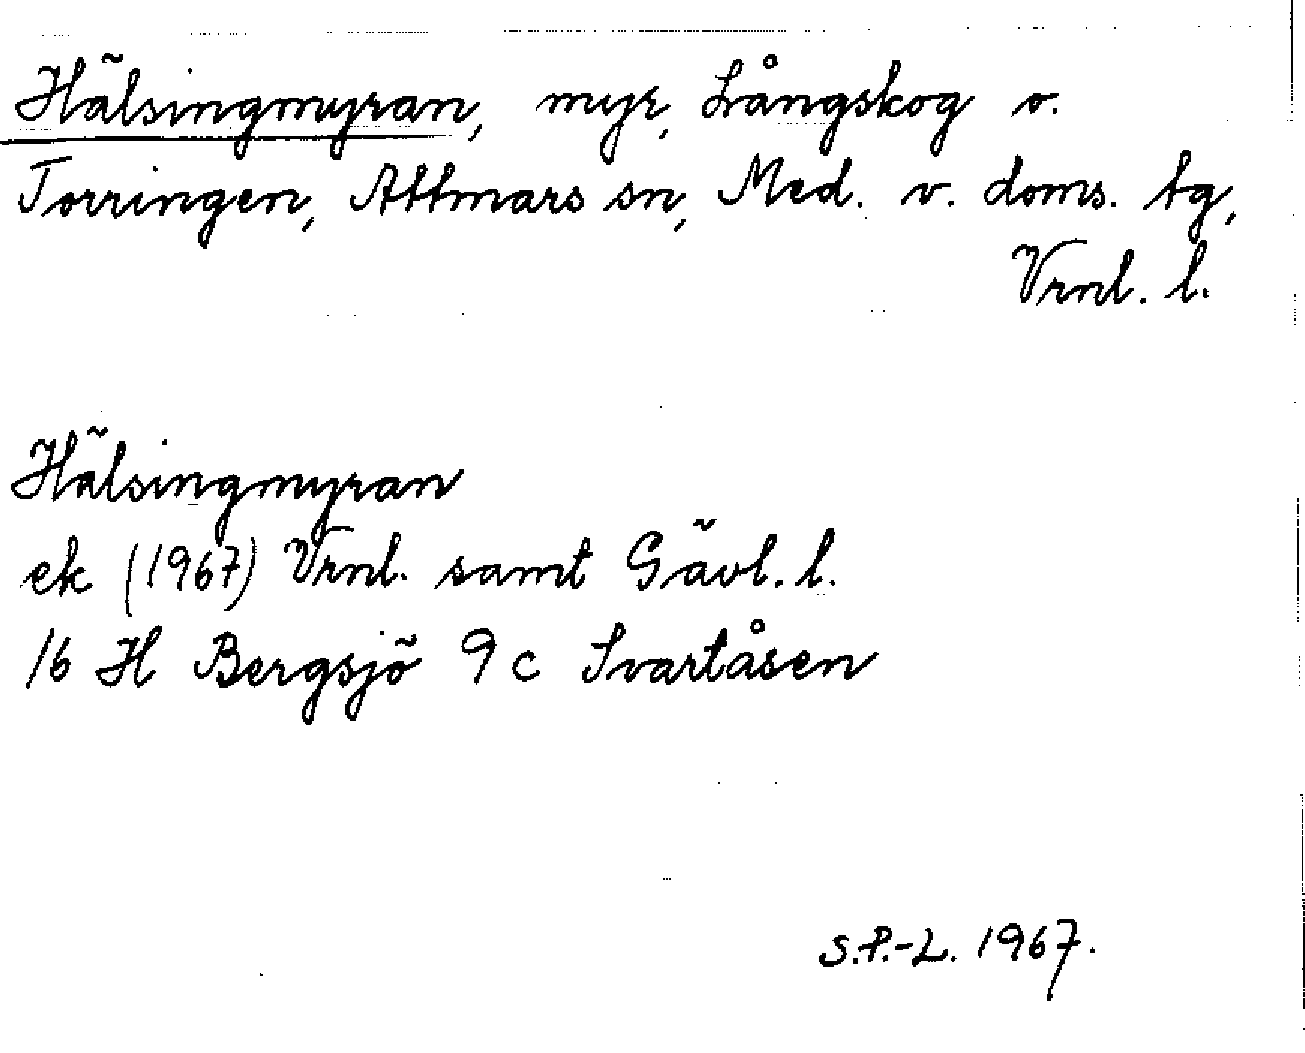 Hälsingmyran, myr, Långskog o.
Torringen, Attmars sn, Med. v. doms. tg,
Vrnl. l.
Hälsingmyran
ek (1967) Vrnl. samt Gävl. l.
16 H Bergsjö 9 c Svartåsen
S.P.-L. 1967.